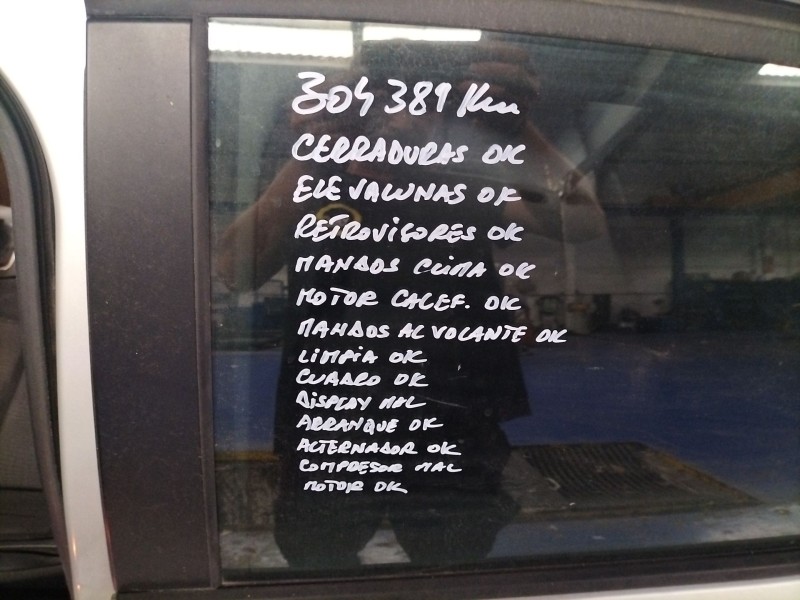 304 389 Km
CERRADURAS OK
ELEVALUNAS OK
RETROVISORES OK
MANDOS CLIMA OK
MOTOR CALEF. OK
MANDOS AL VOLANTE OK
LIMPIA OK
CUADRO OK
DISPLAY MAL
ARRANQUE OK
ALTERNADOR OK
COMPRESOR MAL
MOTOR OK